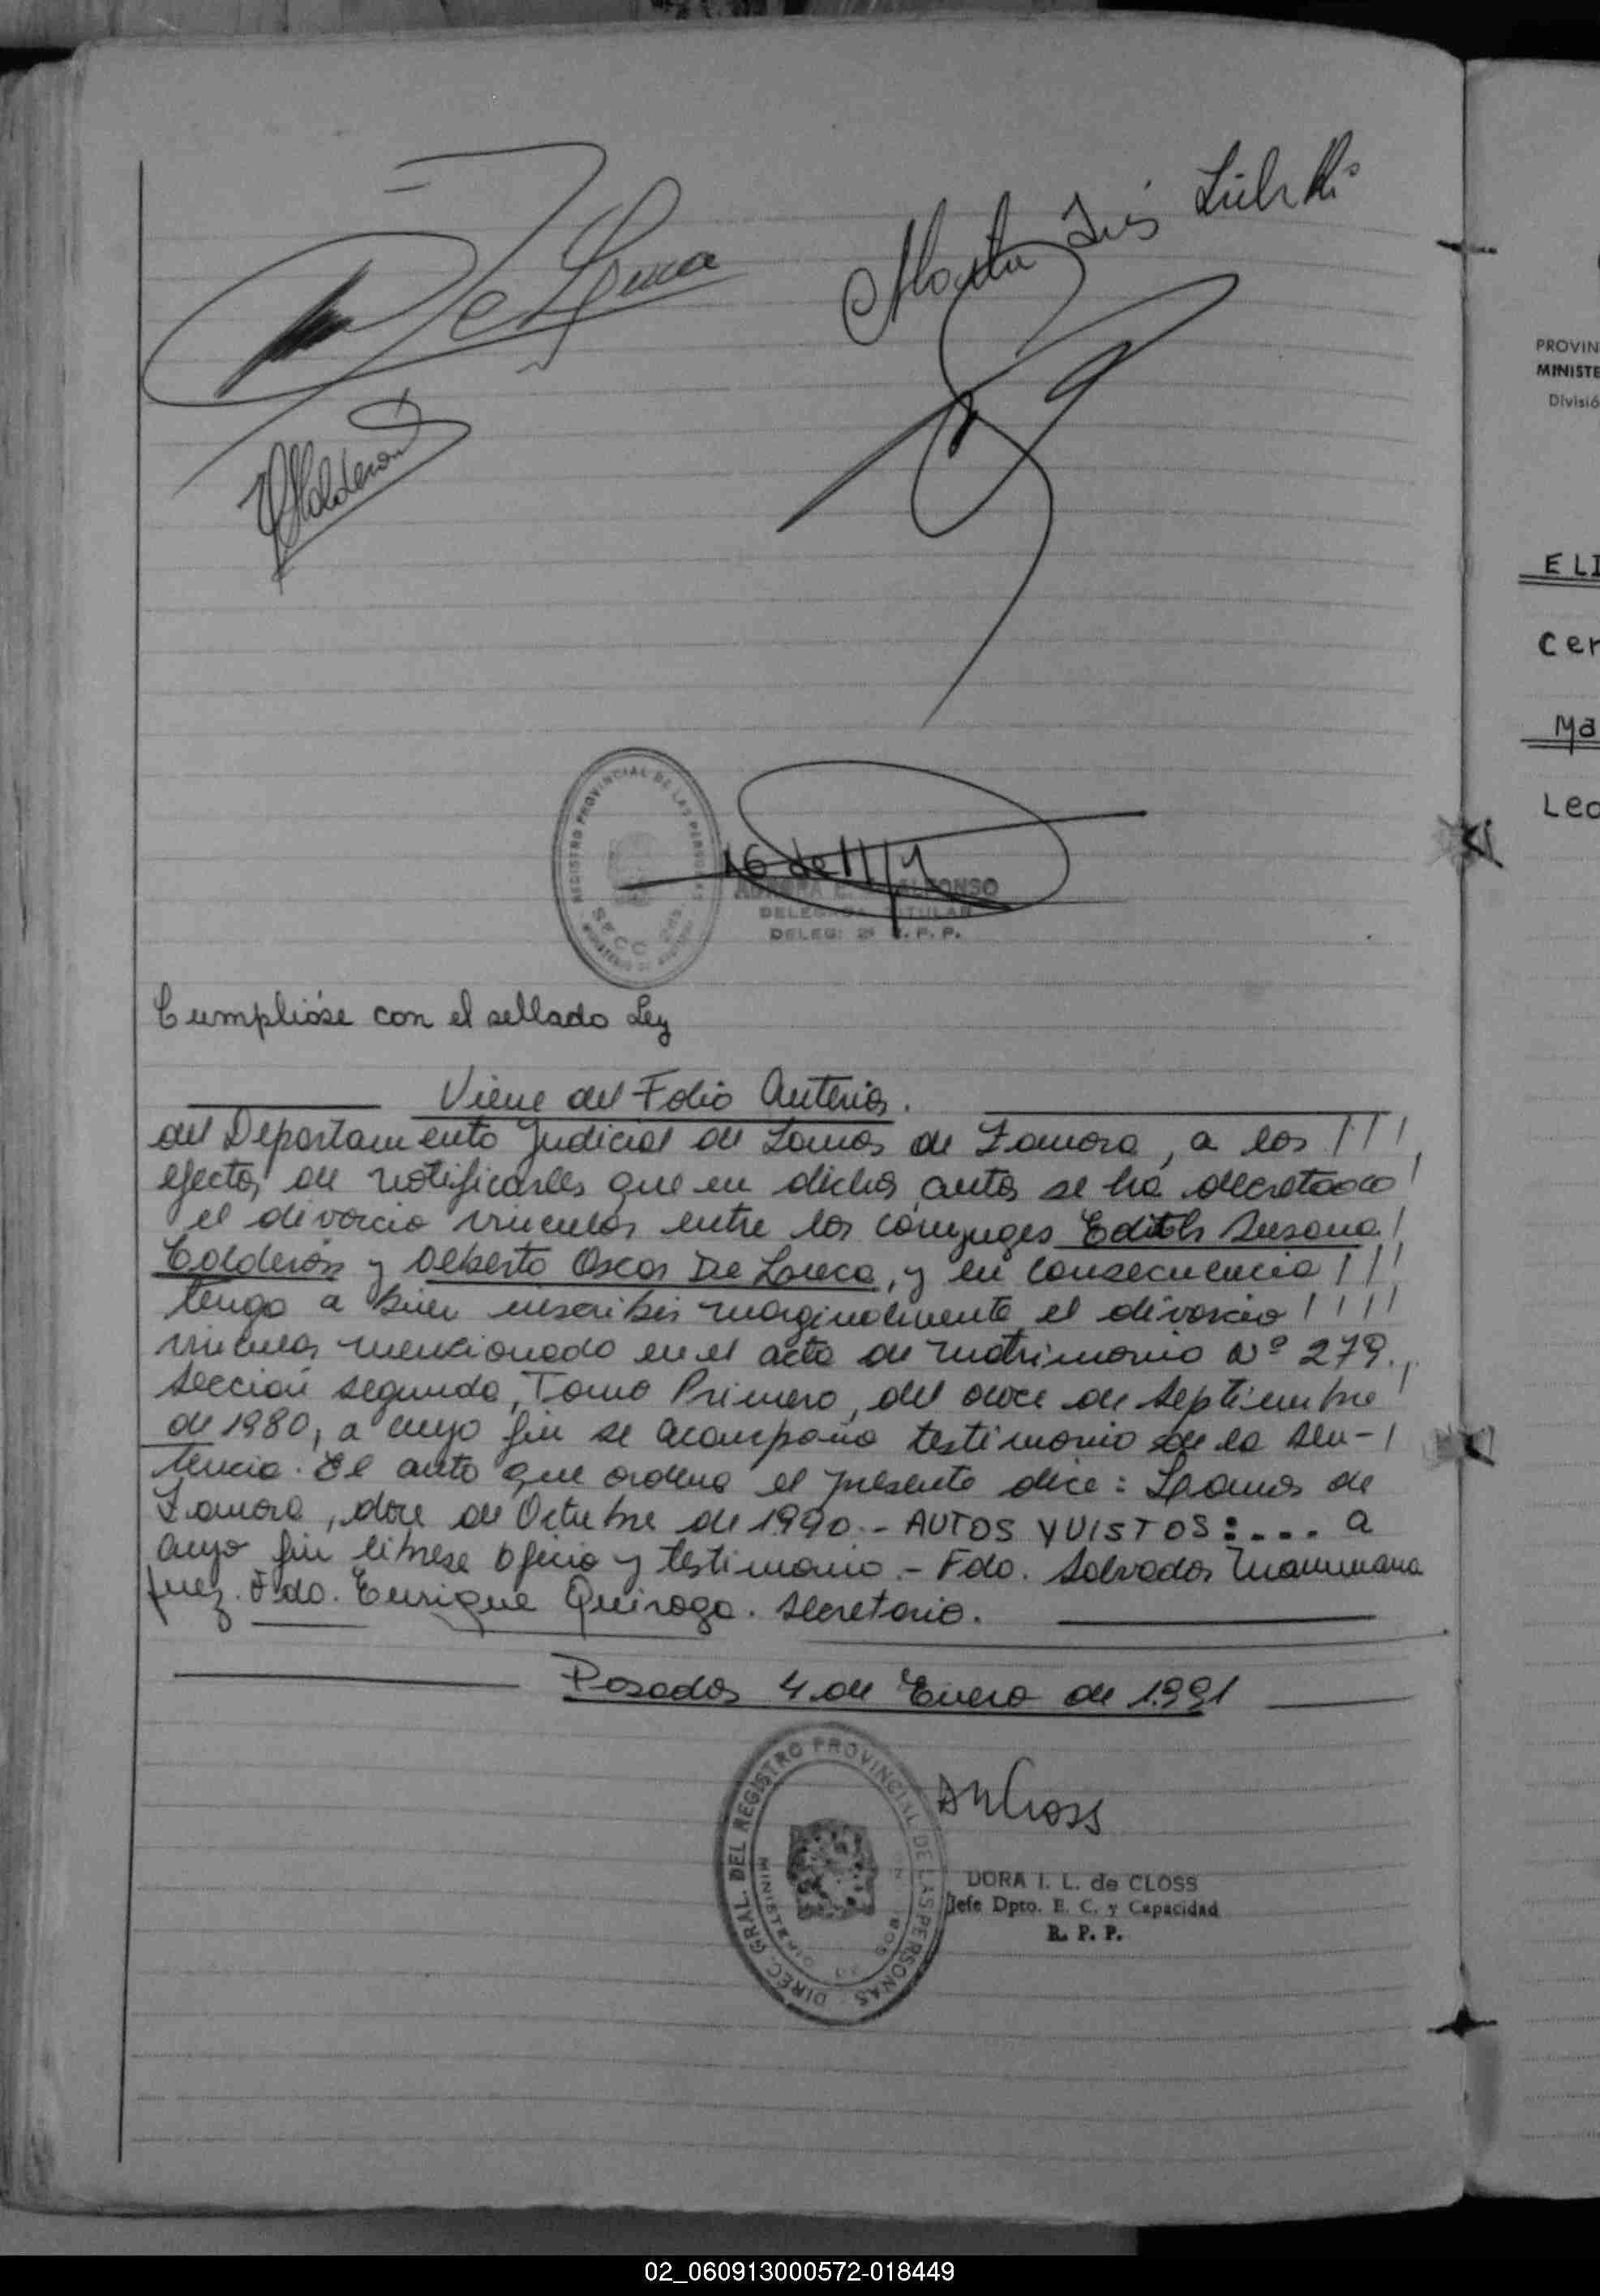 De Luca
Marta Inés
Calderon
REGISTRO PROVINCIAL DE LAS PERSONAS
SECC 2da.
16 de 11/7
ALFONSO
DELEGADA TITULAR
DELEG: 2ª R. P. P.
Cumplióse con el sellado Ley
Viene del Folio Anterior.
del Departamento Judicial de Lomas de Zamora, a los
efectos de notificarles que en dichos autos se ha decretado
el divorcio vincular entre los cónyuges Edith Susana
Calderón y Alberto Oscar De Luca, y en consecuencia
tenga a bien inscribir marginalmente el divorcio
vincular mencionado en el acta de matrimonio Nº 279.,
Sección segunda, Tomo Primero, del doce de Septiembre
de 1980, a cuyo fin se acompaña testimonio de la sen-
tencia. El auto que ordena el presente dice: Lomas de
Zamora, doce de Octubre de 1990.- AUTOS Y VISTOS:.... a
cuyo fin librese oficio y testimonio.- Fdo. Salvador Mammana
Juez. Fdo. Enrique Quiroga. Secretario.
Posadas 4 de Enero de 1991
DIREC. GRAL. DEL REGISTRO PROVINCIAL DE LAS PERSONAS
MINISTERIO DE GOB.
DORA I. L. de CLOSS
Jefe Dpto. E. C. y Capacidad
R. P. P.
PROVIN
MINISTE
Divisió
ELI
Cer
Ma
Leo
02_060913000572-018449